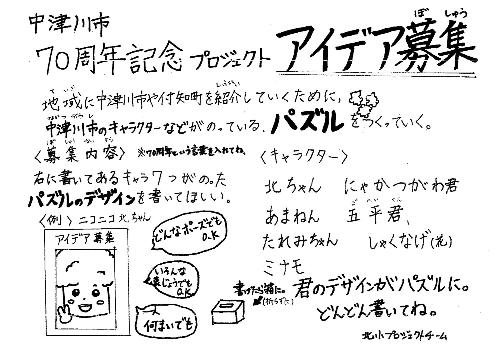 中津川市
70周年記念プロジェクト アイデア募集
ぼ しゅう
地域に中津川市や付知町を紹介していくために、
中津川市のキャラクターなどがのっている、パズルをつくっていく。
〈募集内容〉 ※70周年という言葉を入れてね。
右に書いてあるキャラ7つがのった
パズルのデザインを書いてほしい。
〈例〉 ニコニコ北ちゃん
アイデア募集
どんなポーズでも
O.K
いろんな
表じょうでも
O.K
何まいでも
〈キャラクター〉
北ちゃん にゃかつがわ君
あまねん 五平君、
たれみちゃん しゃくなげ(花)
ミナモ
書けたら箱に。
(折らずに)
君のデザインがパズルに。
どんどん書いてね。
北小プロジェクトチーム